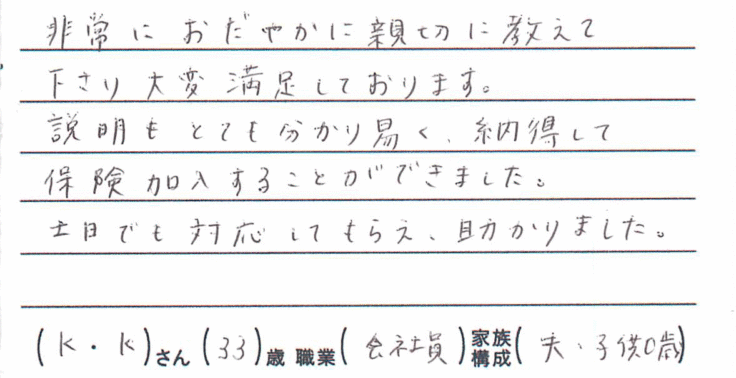 非常におだやかに親切に教えて
下さり大変満足しております。
説明もとても分かり易く、納得して
保険加入することができました。
土日でも対応してもらえ、助かりました。
(K・K)さん(33)歳 職業(会社員)家族構成(夫・子供0歳)